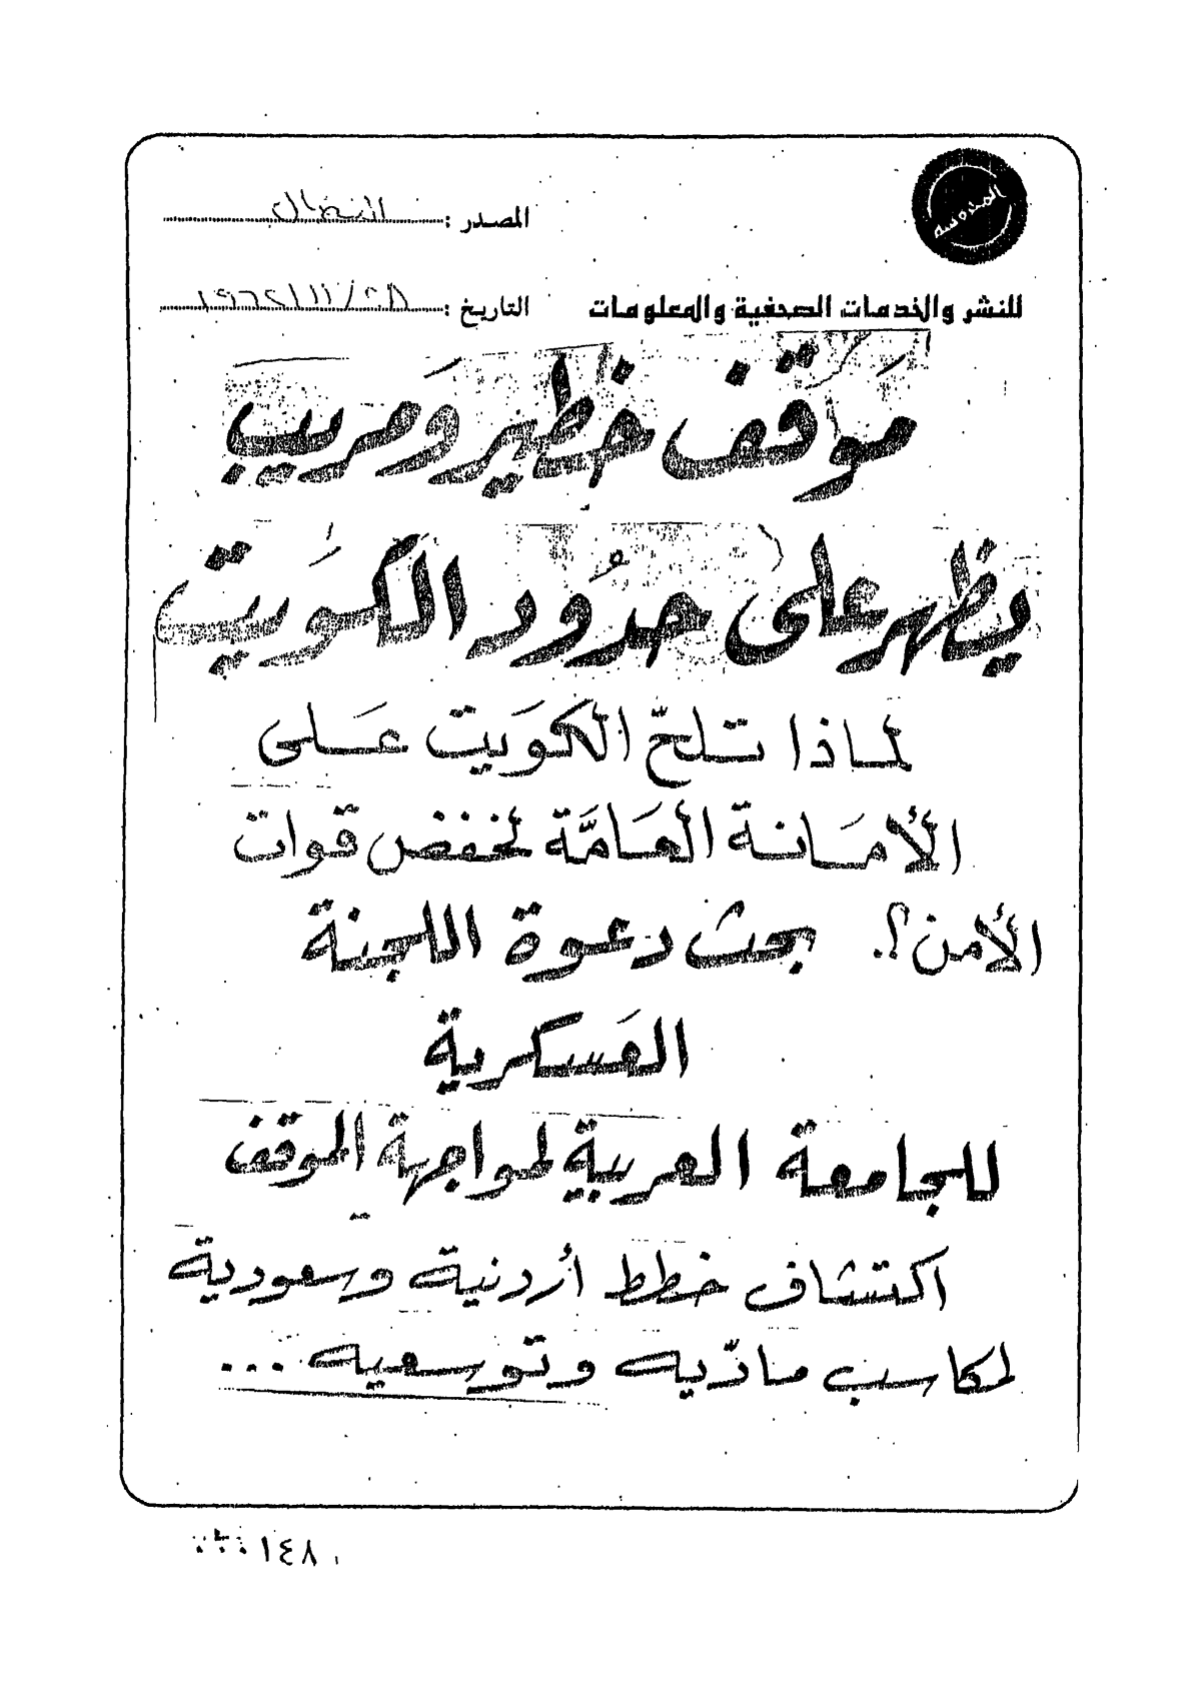 المندوسه
المصدر : النضال
للنشر والخدمات الصحفية والمعلومات
التاريخ : ٢٨/١١/١٩٦٢
مَوقف خطير وَمريب
يظهر على حدُود الكوَيت
لماذا تلحّ الكوَيت عَلى
الأمَانة العَامَّة لخفض قوات
الأمن؟. بحث دعوة اللجنة
العَسكرية
للجامعة العربية لمواجهة الموقف
اكتشاف خطط أردنية وسعودية
لمكاسب مادّيه وتوسعيه ...
١٤٨